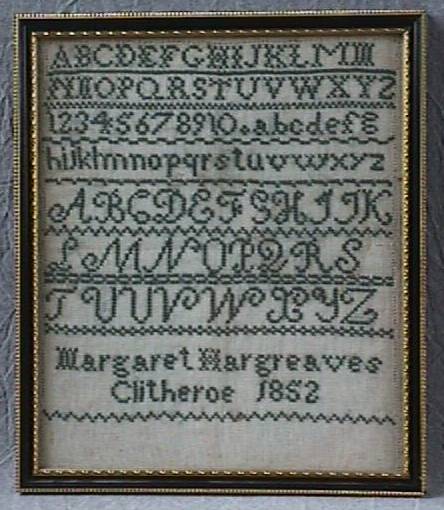 ABCDEFGHIJKLMM
NNOPQRSTUVWXYZ
12345678910.abcdefg
hijklmnopqrstuvwxyz
ABCDEFGHIJK
LMNNOPQRS
TUUVWXYZ
Margaret Hargreaves
Clitheroe 1852